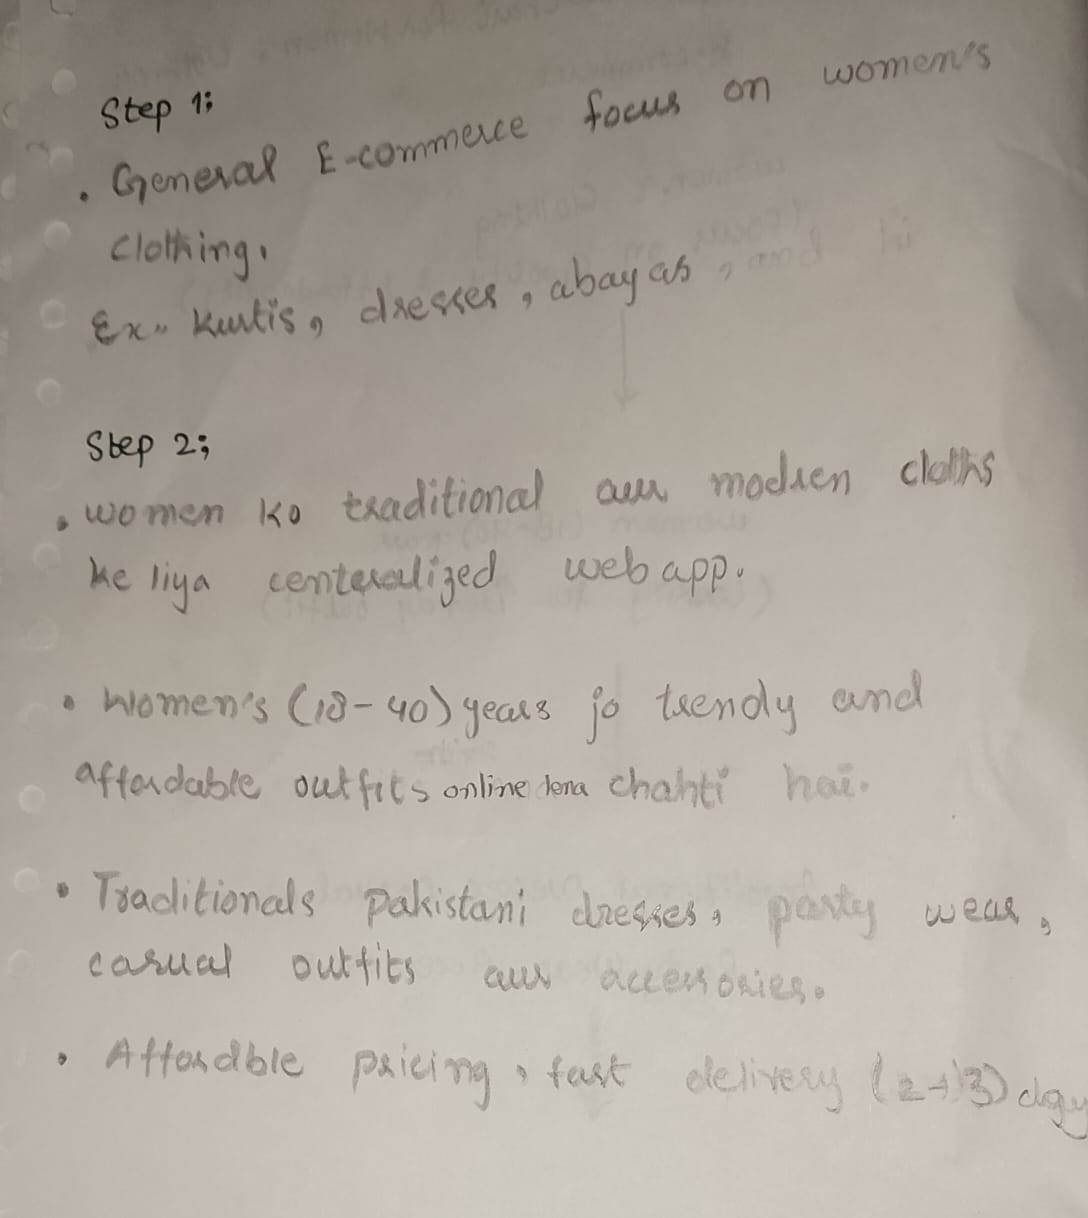 Step 1:
. General E-commerce focus on women's
clothing.
Ex.. Kurtis, dresses, abayas, and
Step 2;
. women ko traditional aur modren cloths
ke liya centeralized web app.
• Women's (18-40) years jo trendy and
affordable outfits online lena chahti hai.
• Traditionals Pakistani dresses, party wear,
casual outfits aur accessories.
• Affordble pricing, fast delivery (2-3) day